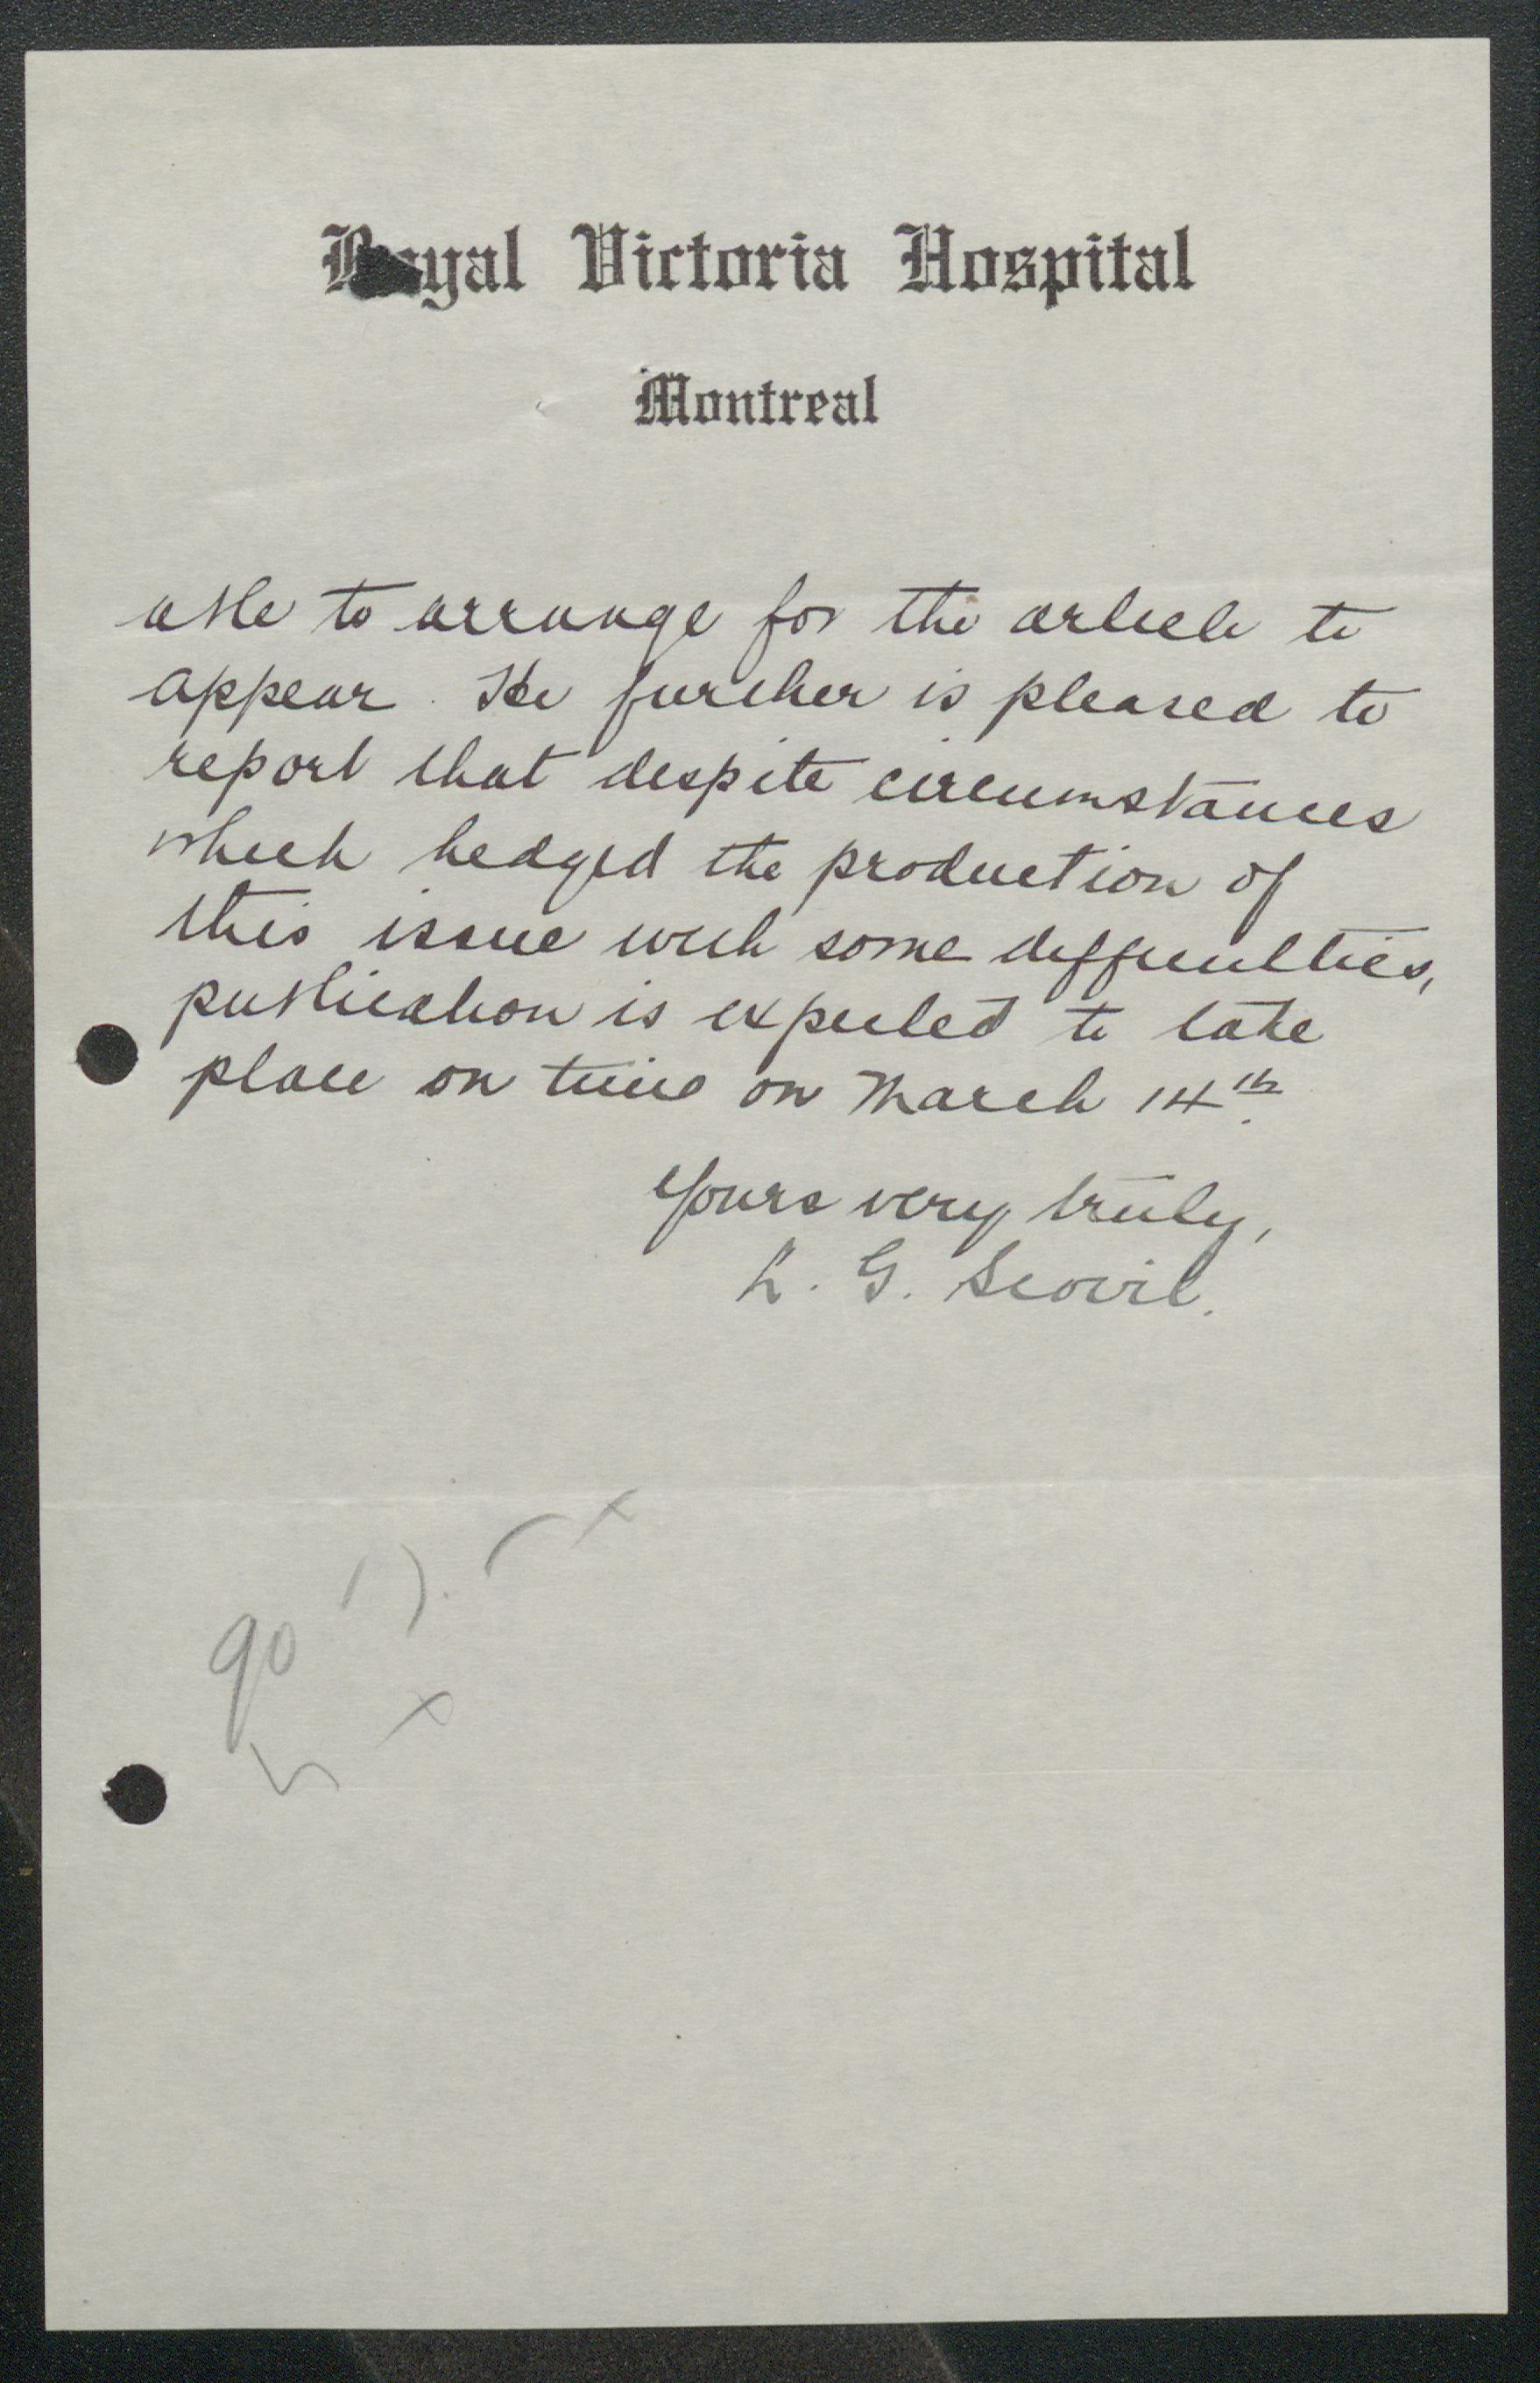 Royal Victoria Hospital
Montreal
able to arrange for the article to
appear. He further is pleased to
report that despite circumstances
which hedged the production of
this issue with some difficulties,
publication is expected to take
place on time on March 14th.
Yours very truly,
L. G. Scovil.
90